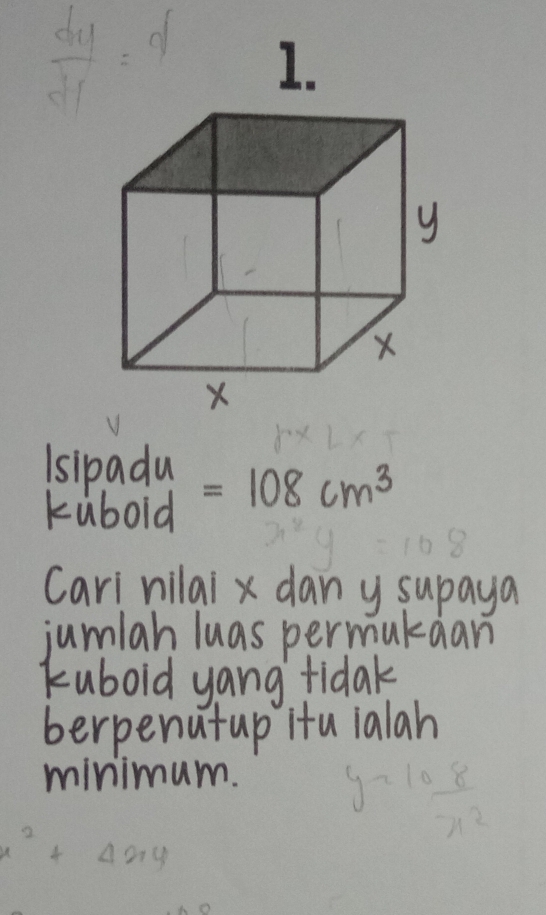 dy/dx =
1.
y
x
x
V
Isipadu
kuboid = 108 cm³
x²y = 108
Cari nilai x dan y supaya
jumlah luas permukaan
kuboid yang tidak
berpenutup itu ialah
minimum.
y = 108/x²
x² + 4xy
108